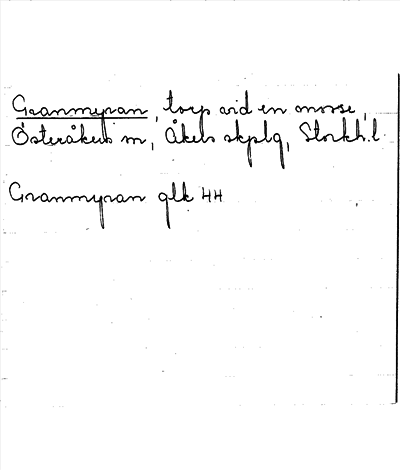 Granmyran, torp vid en mosse,
Österåkers sn, Åkers skplg, Stockh. l.
Granmyran glk 44